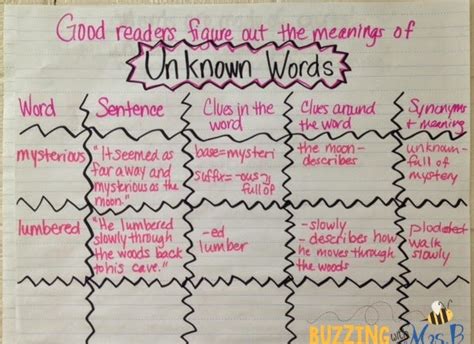 Good readers figure out the meanings of
Unknown Words
Word
Sentence
Clues in the
word
Clues around
the word
Synonyms
+ meaning
mysterious
"It seemed as
far away and
mysterious as the
moon."
base=mysteri
suffix= -ous
full of
the moon-
describes
unknown-
full of
mystery
lumbered
"He lumbered
slowly through
the woods back
to his cave."
-ed
lumber
-slowly
- describes how
he moves through
the woods
plodded
walk
slowly
BUZZING with Mrs. B